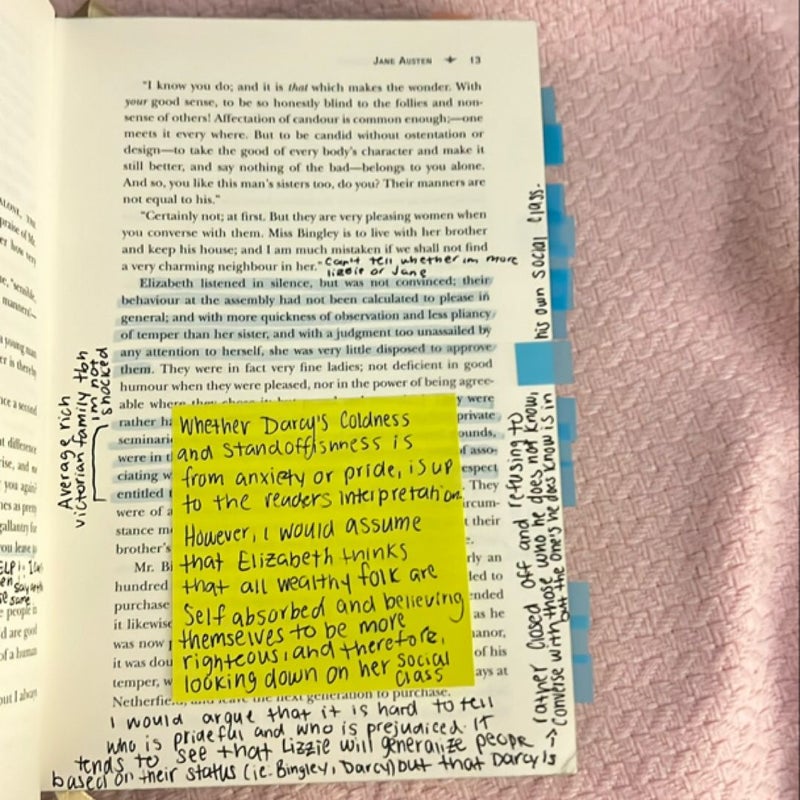 JANE AUSTEN ✦ 13
"I know you do; and it is that which makes the wonder. With
your good sense, to be so honestly blind to the follies and non-
sense of others! Affectation of candour is common enough;—one
meets it every where. But to be candid without ostentation or
design—to take the good of every body's character and make it
still better, and say nothing of the bad—belongs to you alone.
And so, you like this man's sisters too, do you? Their manners are
not equal to his."
"Certainly not; at first. But they are very pleasing women when
you converse with them. Miss Bingley is to live with her brother
and keep his house; and I am much mistaken if we shall not find
a very charming neighbour in her."
Can't tell whether im more
lizzie or Jane
Elizabeth listened in silence, but was not convinced; their
behaviour at the assembly had not been calculated to please in
general; and with more quickness of observation and less pliancy
of temper than her sister, and with a judgment too unassailed by
any attention to herself, she was very little disposed to approve
them. They were in fact very fine ladies; not deficient in good
humour when they were pleased, nor in the power of being agree-
able where they were
rather private
seminari ounds,
were in t of asso-
ciating w espect
entitled They
were of a ircum-
stance m their
brother's
Mr. Bi rly an
hundred led to
purchase ended
it likewise as he
was now anor,
it was dou of his
temper, w ays at
Netherfie the next generation to purchase.
Average rich
victorian family tbh
im not
shocked
Whether Darcy's Coldness
and standoffishness is
from anxiety or pride, is up
to the readers interpretation.
However, i would assume
that Elizabeth thinks
that all wealthy folk are
self absorbed and believing
themselves to be more
righteous, and therefore,
looking down on her social
class
I would argue that it is hard to tell
who is prideful and who is prejudiced. It
tends to see that Lizzie will generalize people
based on their status (ie. Bingley, Darcy) but that Darcy is →
rather closed off and refusing to
converse with those who he does not know,
but the one's he does know is in
his own social class.